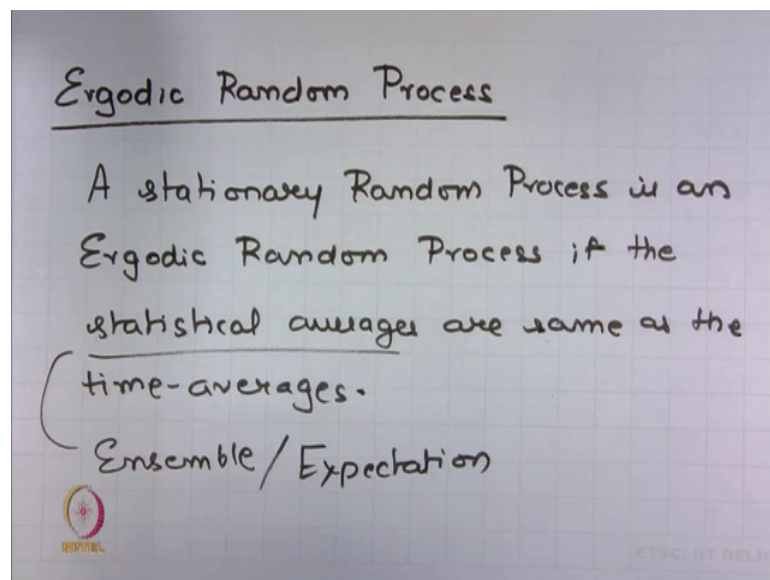 Ergodic Random Process
A stationary Random Process is an
Ergodic Random Process if the
statistical averages are same as the
time-averages.
Ensemble/Expectation
NPTEL
ETSC, IIT DELHI